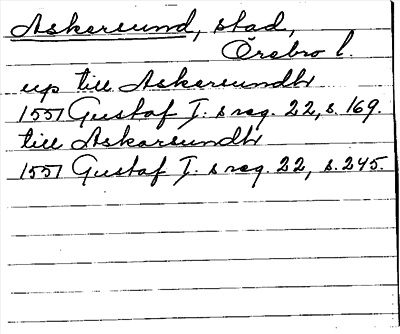 Askersund, stad,
Örebro l.
up till Askersundh
1551 Gustaf I:s reg. 22, s. 169.
till Askarsundh
1551 Gustaf I:s reg. 22, s. 245.